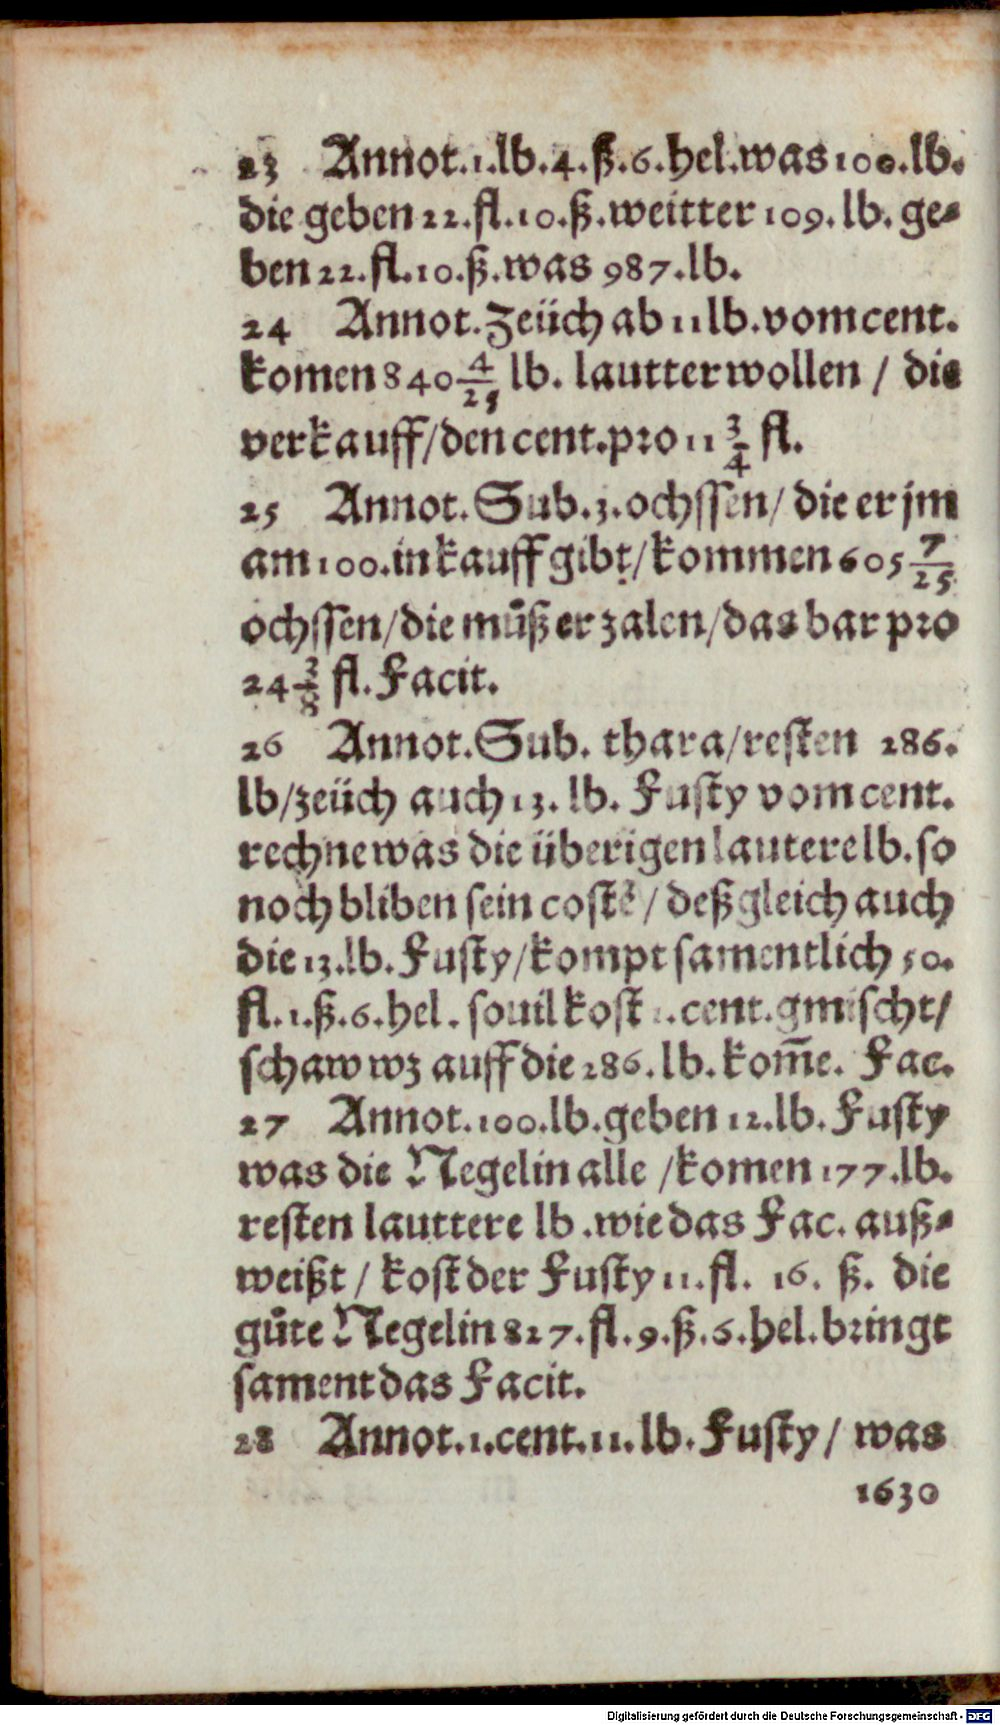 23 Annot.1.lb.4.ß.6.hel.was 100.lb.
die geben 22.fl.10.ß.weitter 109.lb. ge⸗
ben 22.fl.10.ß.was 987.lb.
24 Annot.Zeüch ab 11 lb.vom cent.
komen 840 4/25 lb. lautter wollen / die
verkauff/den cent.pro 11 3/4 fl.
25 Annot.Sub.3.ochssen/ die er jm
am 100.in kauff gibt/kommen 605 7/25
ochssen/die můß er zalen/das bar pro
24 3/8 fl.Facit.
26 Annot.Sub. thara/resten 286.
lb/zeüch auch 13. lb. Fusty vom cent.
rechne was die überigen lautere lb.so
noch bliben sein costẽ/ deßgleich auch
die 13.lb.Fusty/kompt samentlich 50.
fl.1.ß.6.hel. souil kost 1.cent.gmischt/
schaw wz auff die 286.lb.kom̄e. Fac.
27 Annot.100.lb.geben 12.lb.Fusty
was die Negelin alle /komen 177.lb.
resten lauttere lb .wie das Fac. auß⸗
weißt / kost der Fusty 11.fl. 16. ß. die
gůte Negelin 827.fl.9.ß.6.hel.bringt
sament das Facit.
28 Annot.1.cent.11.lb.Fusty/ was
1630
Digitalisierung gefördert durch die Deutsche Forschungsgemeinschaft - DFG